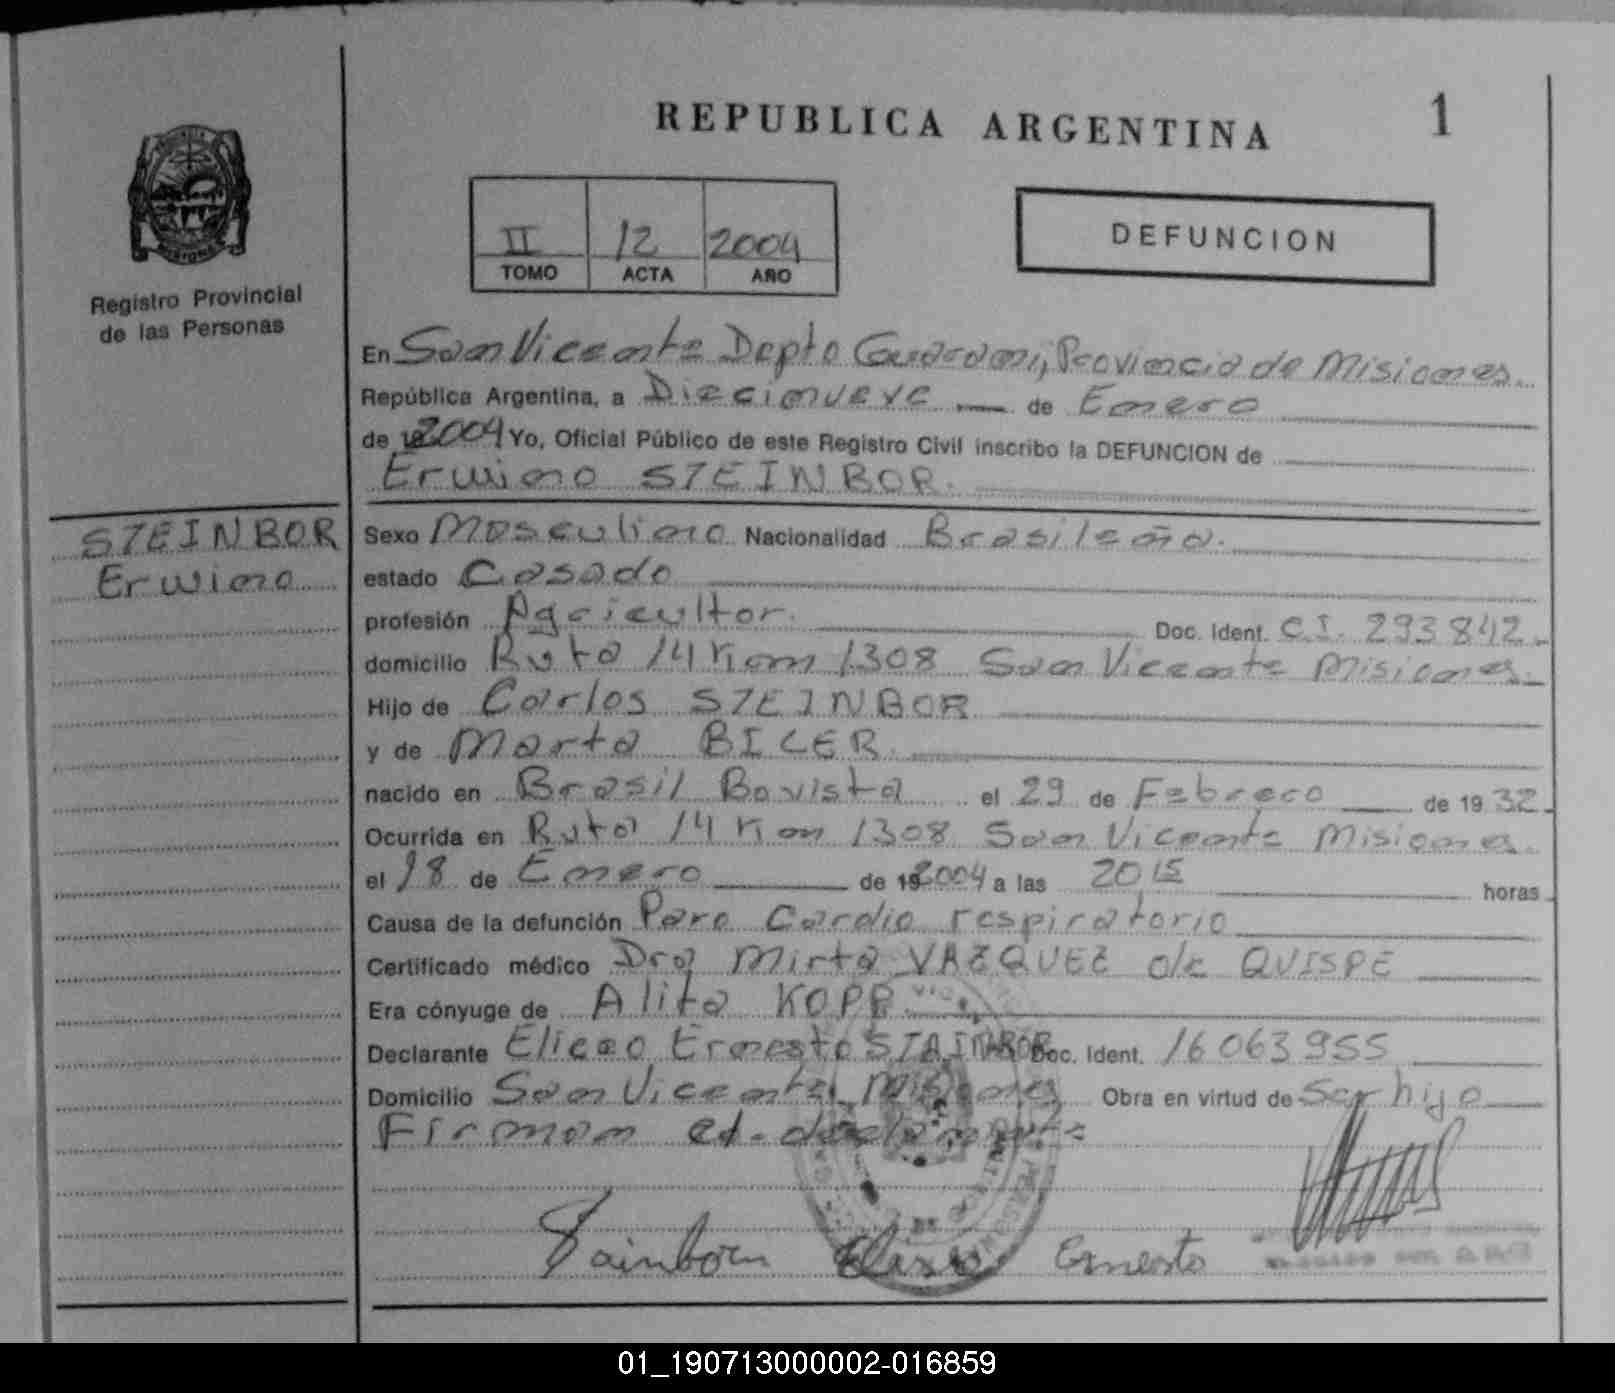 REPUBLICA ARGENTINA
1
Registro Provincial
de las Personas
II 12 2004
TOMO ACTA AÑO
DEFUNCION
En San Vicente Depto Guaraní, Provincia de Misiones.
República Argentina, a Diecinueve de Enero
de 2004 Yo, Oficial Público de este Registro Civil inscribo la DEFUNCION de
Erwino STEINBOR.
STEINBOR
Erwino
Sexo Masculino Nacionalidad Brasileña.
estado Casado
profesión Agricultor. Doc. Ident. C.I. 293842
domicilio Ruta 14 Km 1308 San Vicente Misiones.
Hijo de Carlos STEINBOR
y de Marta BICER.
nacido en Brasil Bovista el 29 de Febrero de 1932
Ocurrida en Ruta 14 Km 1308 San Vicente Misiones.
el 18 de Enero de 192004 a las 20 15 horas
Causa de la defunción Paro Cardio respiratorio
Certificado médico Dra Mirta VAZQUEZ d/c QUISPE
Era cónyuge de Alita KOPP
Declarante Eliceo Ernesto STAINBOR Doc. Ident. 16063955
Domicilio San Vicente, Misiones Obra en virtud de Ser hijo
Firman el declarante
Ernesto
01_190713000002-016859